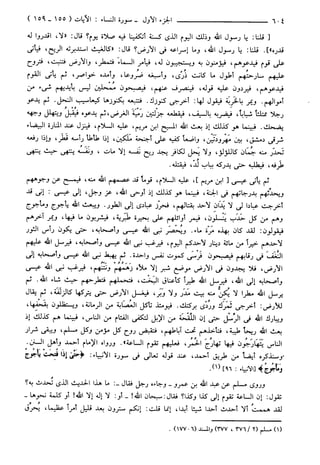 ٦٠٤ ــــــ الجزء الأول - سورة النساء : الآيات (١٥٥ - ١٥٩)
[ قلنا: يا رسول الله وذلك اليوم الذي كسنة أتكفينا فيه صلاة يوم؟ قال: «لا، اقدروا له
قدره»]. قلنا: يا رسول الله، وما إسراعه في الأرض؟ قال: «كالغيث استدبرته الريح، فيأتي
على قوم فيدعوهم، فيؤمنون به ويستجيبون له، فيأمر السماء فتمطر، والأرض فتنبت، فتروح
عليهم سارحتهم أطول ما كانت ذُرى، وأسبغه ضروعًا، وأمده خواصر، ثم يأتي القوم
فيدعوهم، فيردون عليه قوله، فينصرف عنهم، فيصبحون ممحلين ليس بأيديهم شيء من
أموالهم. ويمر بالخربة فيقول لها: أخرجي كنوزك. فتتبعه كنوزها كيعاسيب النحل. ثم يدعو
رجلا ممتلئا شبابا، فيضربه بالسيف، فيقطعه جزلتين رمية الغرض، ثم يدعوه فيقبل ويتهلل وجهه
يضحك. فبينما هو كذلك إذ بعث الله المسيح ابن مريم، عليه السلام، فينزل عند المنارة البيضاء
شرقي دمشق، بين مهرودتين، واضعا كفيه على أجنحة ملكين، إذا طأطأ رأسه قطر، وإذا رفعه
تحدر منه جمان كاللؤلؤ، ولا يحل لكافر يجد ريح نفسه إلا مات، ونفسه ينتهي حيث ينتهي
طرفه، فيطلبه حتى يدركه بباب لُد، فيقتله.
ثم يأتي عيسى [ابن مريم]، عليه السلام، قوما قد عصمهم الله منه، فيمسح عن وجوههم
ويحدثهم بدرجاتهم في الجنة، فبينما هو كذلك إذ أوحى الله، عز وجل، إلى عيسى: إني قد
أخرجت عبادا لي لا يدان لأحد بقتالهم، فحرز عبادي إلى الطور. ويبعث الله يأجوج ومأجوج
وهم من كل حدب ينسلون، فيمر أوائلهم على بحيرة طبرية، فيشربون ما فيها، ويمر آخرهم
فيقولون: لقد كان بهذه مرة ماء. ويُحصر نبي الله عيسى وأصحابه، حتى يكون رأس الثور
لأحدهم خيرا من مائة دينار لأحدكم اليوم، فيرغب نبي الله عيسى وأصحابه، فيرسل الله عليهم
النغف في رقابهم فيصبحون فرسى كموت نفس واحدة. ثم يهبط نبي الله عيسى وأصحابه إلى
الأرض، فلا يجدون في الأرض موضع شبر إلا ملأه زهمهم ونتنهم، فيرغب نبي الله عيسى
وأصحابه إلى الله، فيرسل الله طيرا كأعناق البخت، فتحملهم فتطرحهم حيث شاء الله. ثم
يرسل الله مطرا لا يكُن منه بيت مدر ولا وبر، فيغسل الأرض حتى يتركها كالزلفة. ثم يقال
للأرض: أخرجي ثمرك وردّي بركتك. فيومئذ تأكل العصابة من الرمانة، ويستظلون بقحفها،
ويبارك الله في الرسل حتى إن اللقحة من الإبل لتكفي الفئام من الناس، فبينما هم كذلك إذ
بعث الله ريحا طيبة، فتأخذهم تحت آباطهم، فتقبض روح كل مؤمن وكل مسلم، ويبقى شرار
الناس يتهارجون فيها تهارج الحمر، فعليهم تقوم الساعة». ورواه الإمام أحمد وأهل السنن.
وسنذكره أيضًا من طريق أحمد، عند قوله تعالى في سورة الأنبياء: ﴿حتى إذا فتحت يأجوج
ومأجوج﴾ [الأنبياء: ٩٦] (١).
وروى مسلم عن عبد الله بن عمرو - وجاءه رجل فقال -: ما هذا الحديث الذي تُحدث به؟
تقول: إن الساعة تقوم إلى كذا وكذا؟ فقال: سبحان الله! - أو: لا إله إلا الله! أو كلمة نحوها -
لقد هممت ألا أحدث أحدا شيئا أبدا، إنما قلت: إنكم سترون بعد قليل أمرا عظيما، يُحرق
(١) مسلم (٢/ ٣٧٦، ٣٧٧) والمسند (١٧٧٠٦).